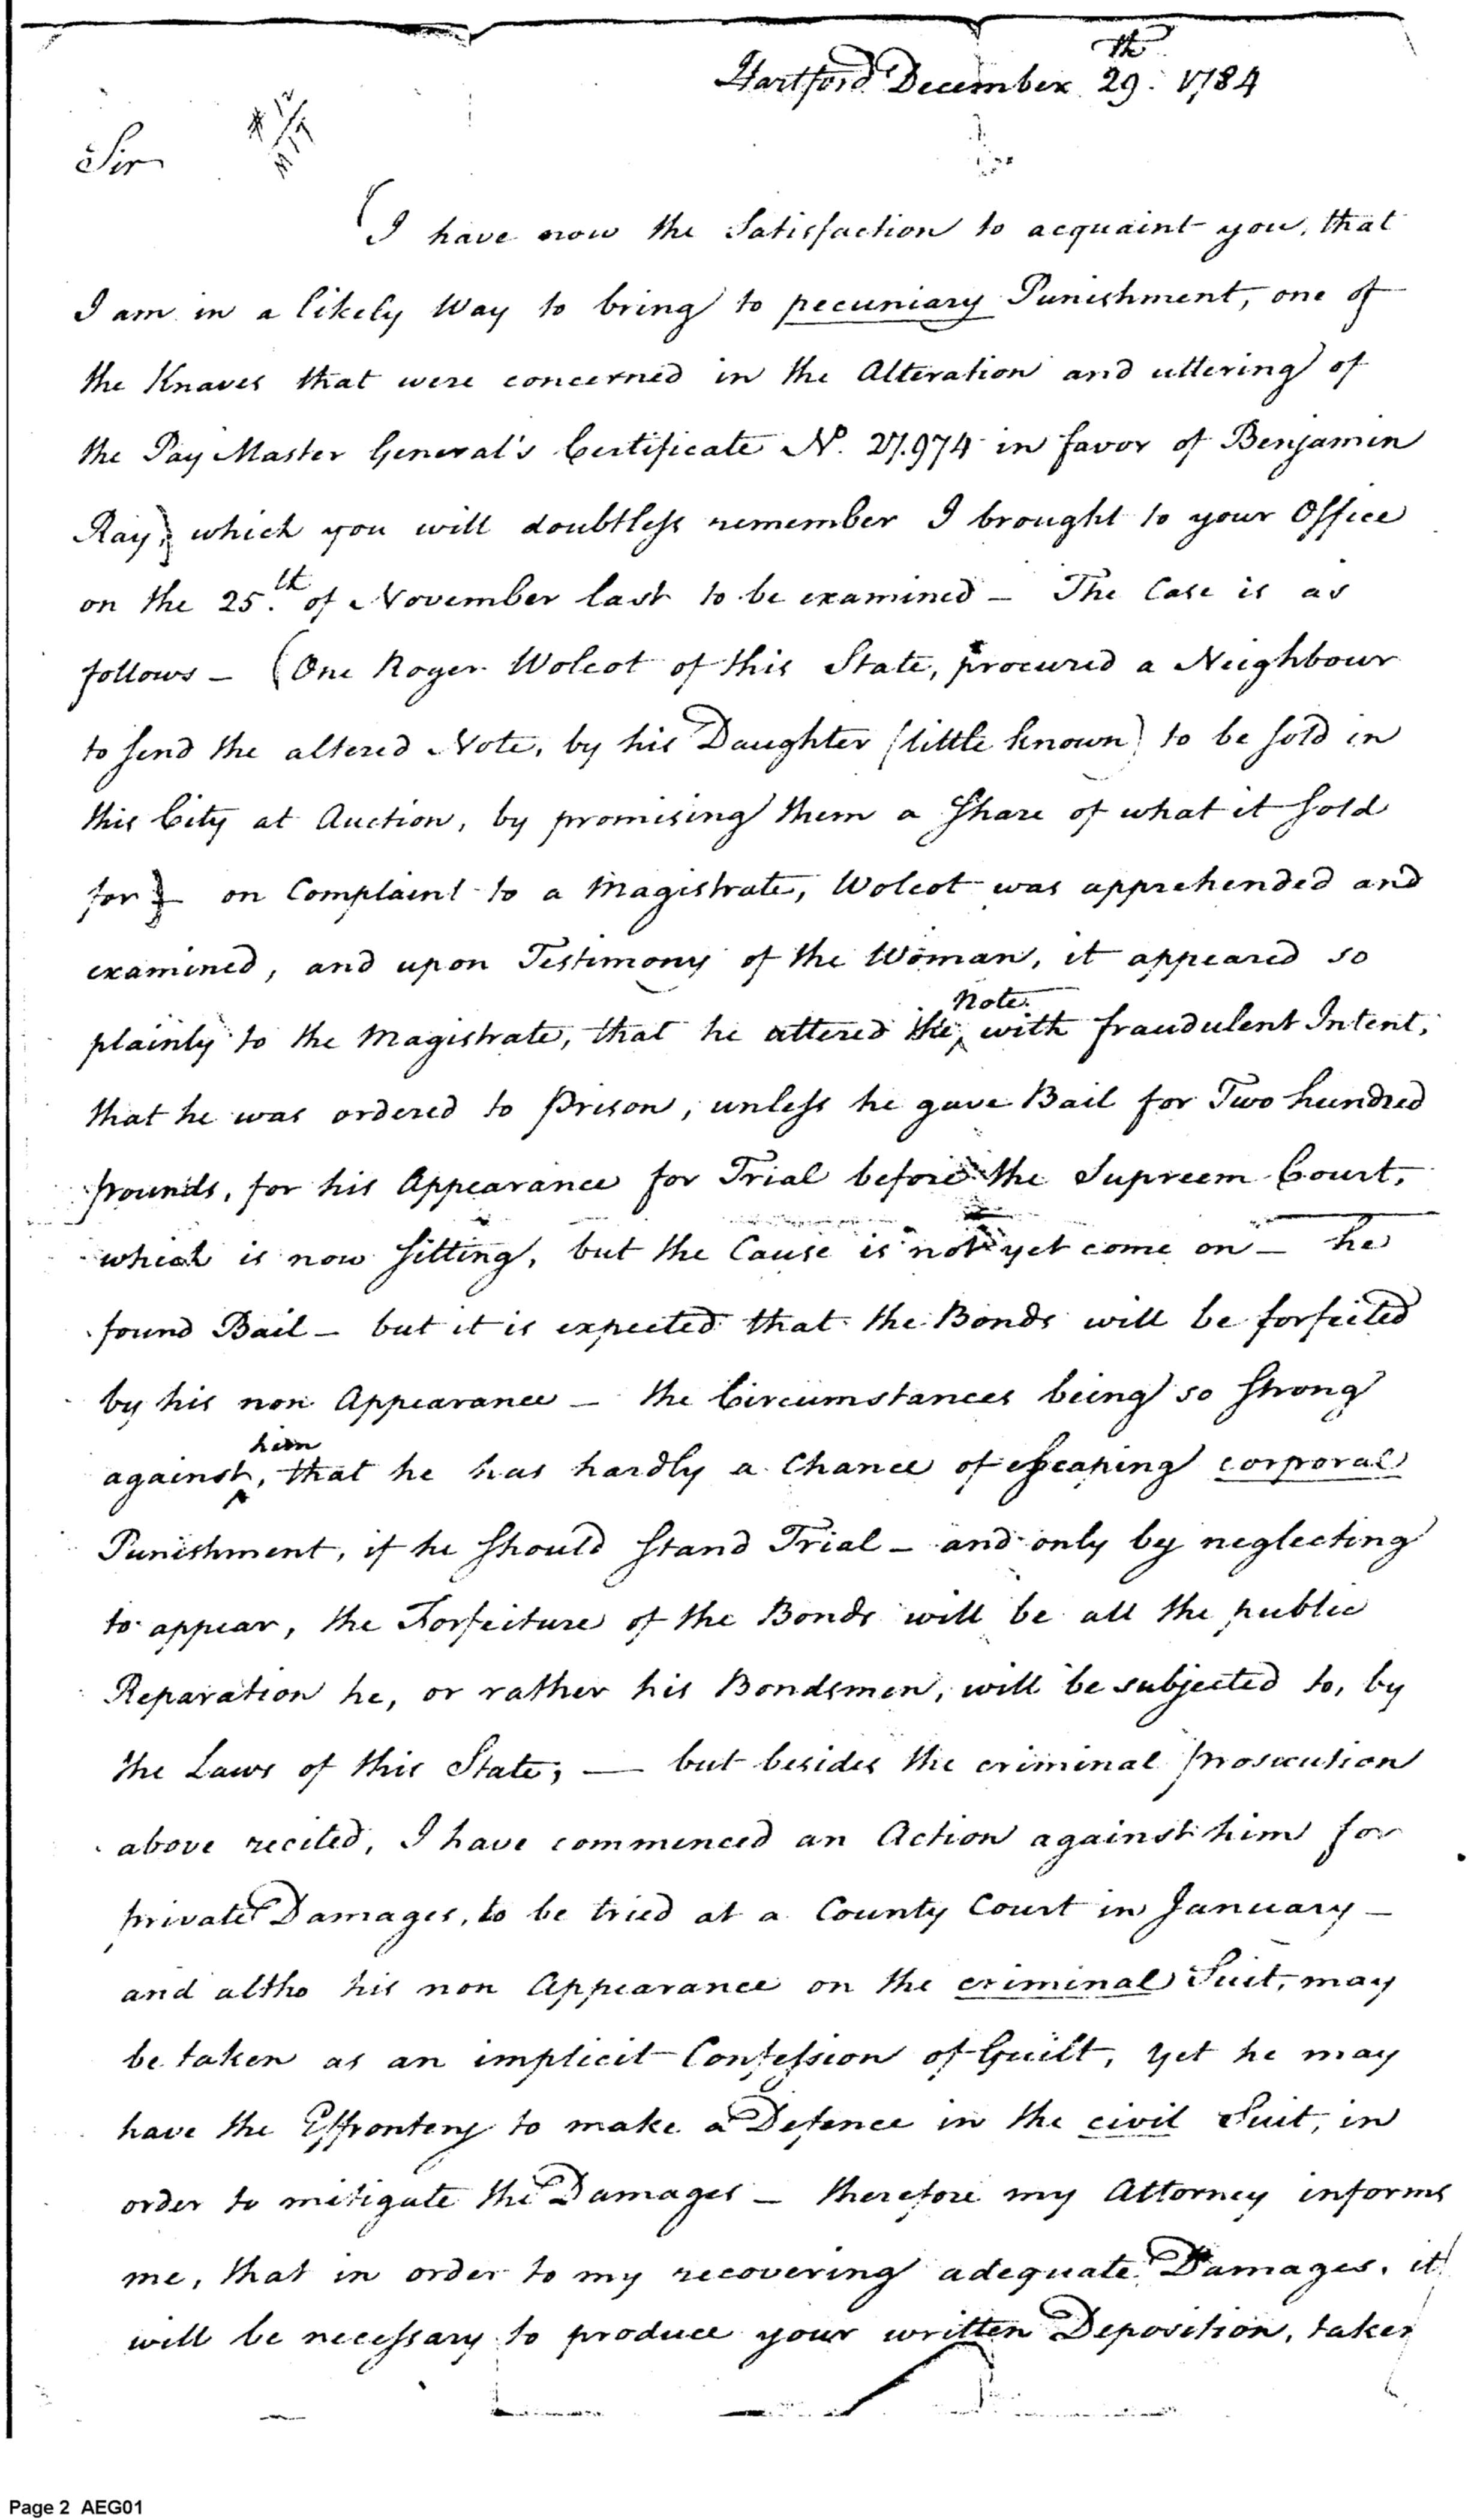 Hartford December 29th. 1784
Sir
I have now the Satisfaction to acquaint you, that
I am in a likely Way to bring to pecuniary Punishment, one of
the Knaves that were concerned in the Alteration and uttering of
the Pay Master General's Certificate No. 27.974 in favor of Benjamin
Ray, which you will doubtless remember I brought to your Office
on the 25.th of November last to be examined – The Case is as
follows – (One Roger Wolcot of this State, procured a Neighbour
to send the altered Note, by his Daughter (little known) to be sold in
this City at Auction, by promising them a Share of what it sold
for) – on Complaint to a Magistrate, Wolcot was apprehended and
examined, and upon Testimony of the Woman, it appeared so
Note
plainly to the Magistrate, that he uttered the, with fraudulent Intent,
that he was ordered to Prison, unless he gave Bail for Two hundred
pounds, for his Appearance for Trial before the Supreem Court,
which is now sitting, but the Cause is not yet come on – he
found Bail – but it is expected that the Bonds will be forfeited
by his non Appearance – the Circumstances being so strong
him
against, that he has hardly a Chance of escaping corporal
Punishment, if he should stand Trial – and only by neglecting
to appear, the Forfeiture of the Bonds will be all the public
Reparation he, or rather his Bondsmen, will be subjected to, by
the Laws of this State; — but besides the criminal prosecution
above recited, I have commenced an Action against him for
private Damages, to be tried at a County Court in January –
and altho his non Appearance on the criminal Suit, may
be taken as an implicit Confession of Guilt, yet he may
have the Effrontery to make a Defence in the civil Suit, in
order to mitigate the Damages – therefore my Attorney informs
me, that in order to my recovering adequate Damages, it
will be necessary to produce your written Deposition, taken
Page 2 AEG01